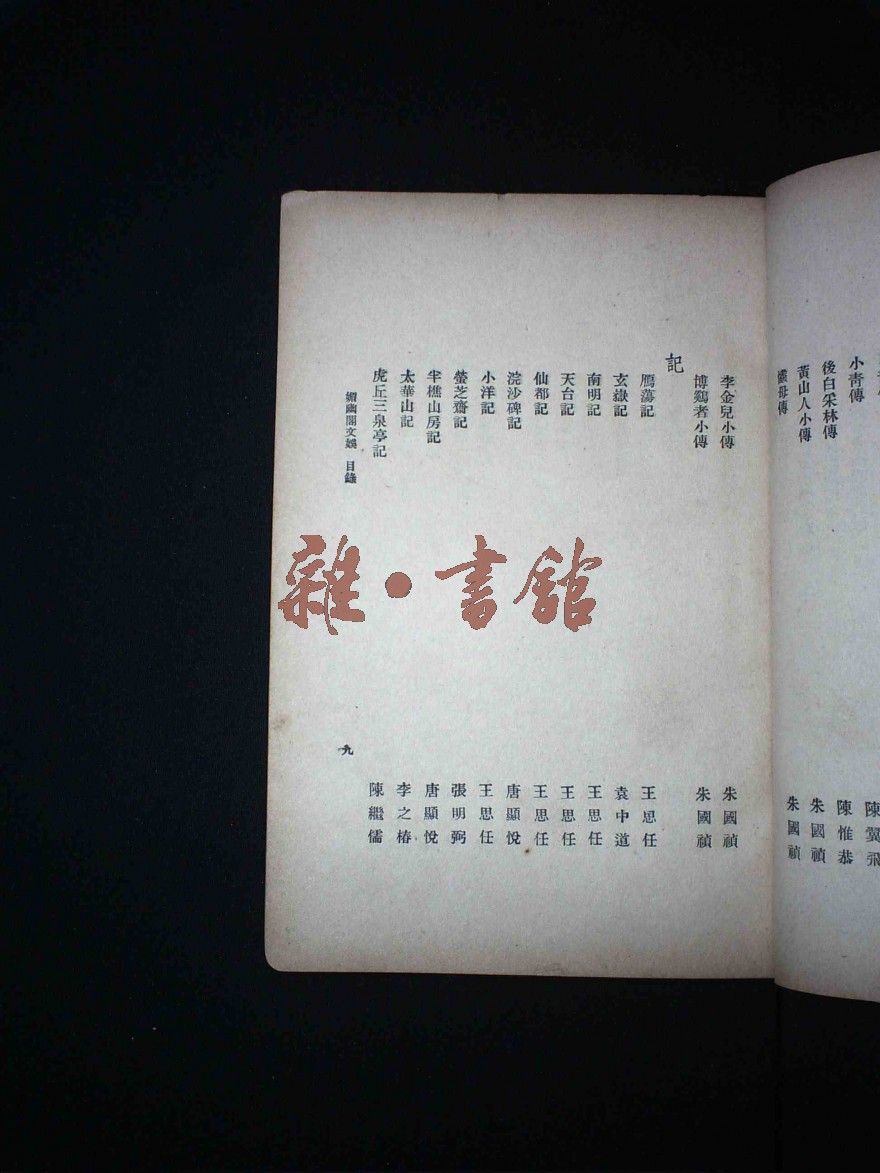 小青傳
後白采林傳 陳翼飛
黃山人小傳 陳惟恭
朱國禎
母傳 朱國禎
李金兒小傳 朱國禎
博雞者小傳 朱國禎
記
鴈蕩記 王思任
玄嶽記 袁中道
南明記 王思任
天台記 王思任
仙都記 王思任
浣沙碑記 唐顯悅
小洋記 王思任
螢芝齋記 張明弼
半樵山房記 唐顯悅
太華山記 李之椿
虎丘三泉亭記 陳繼儒
媚幽閣文娛 目錄
九
雜·書館